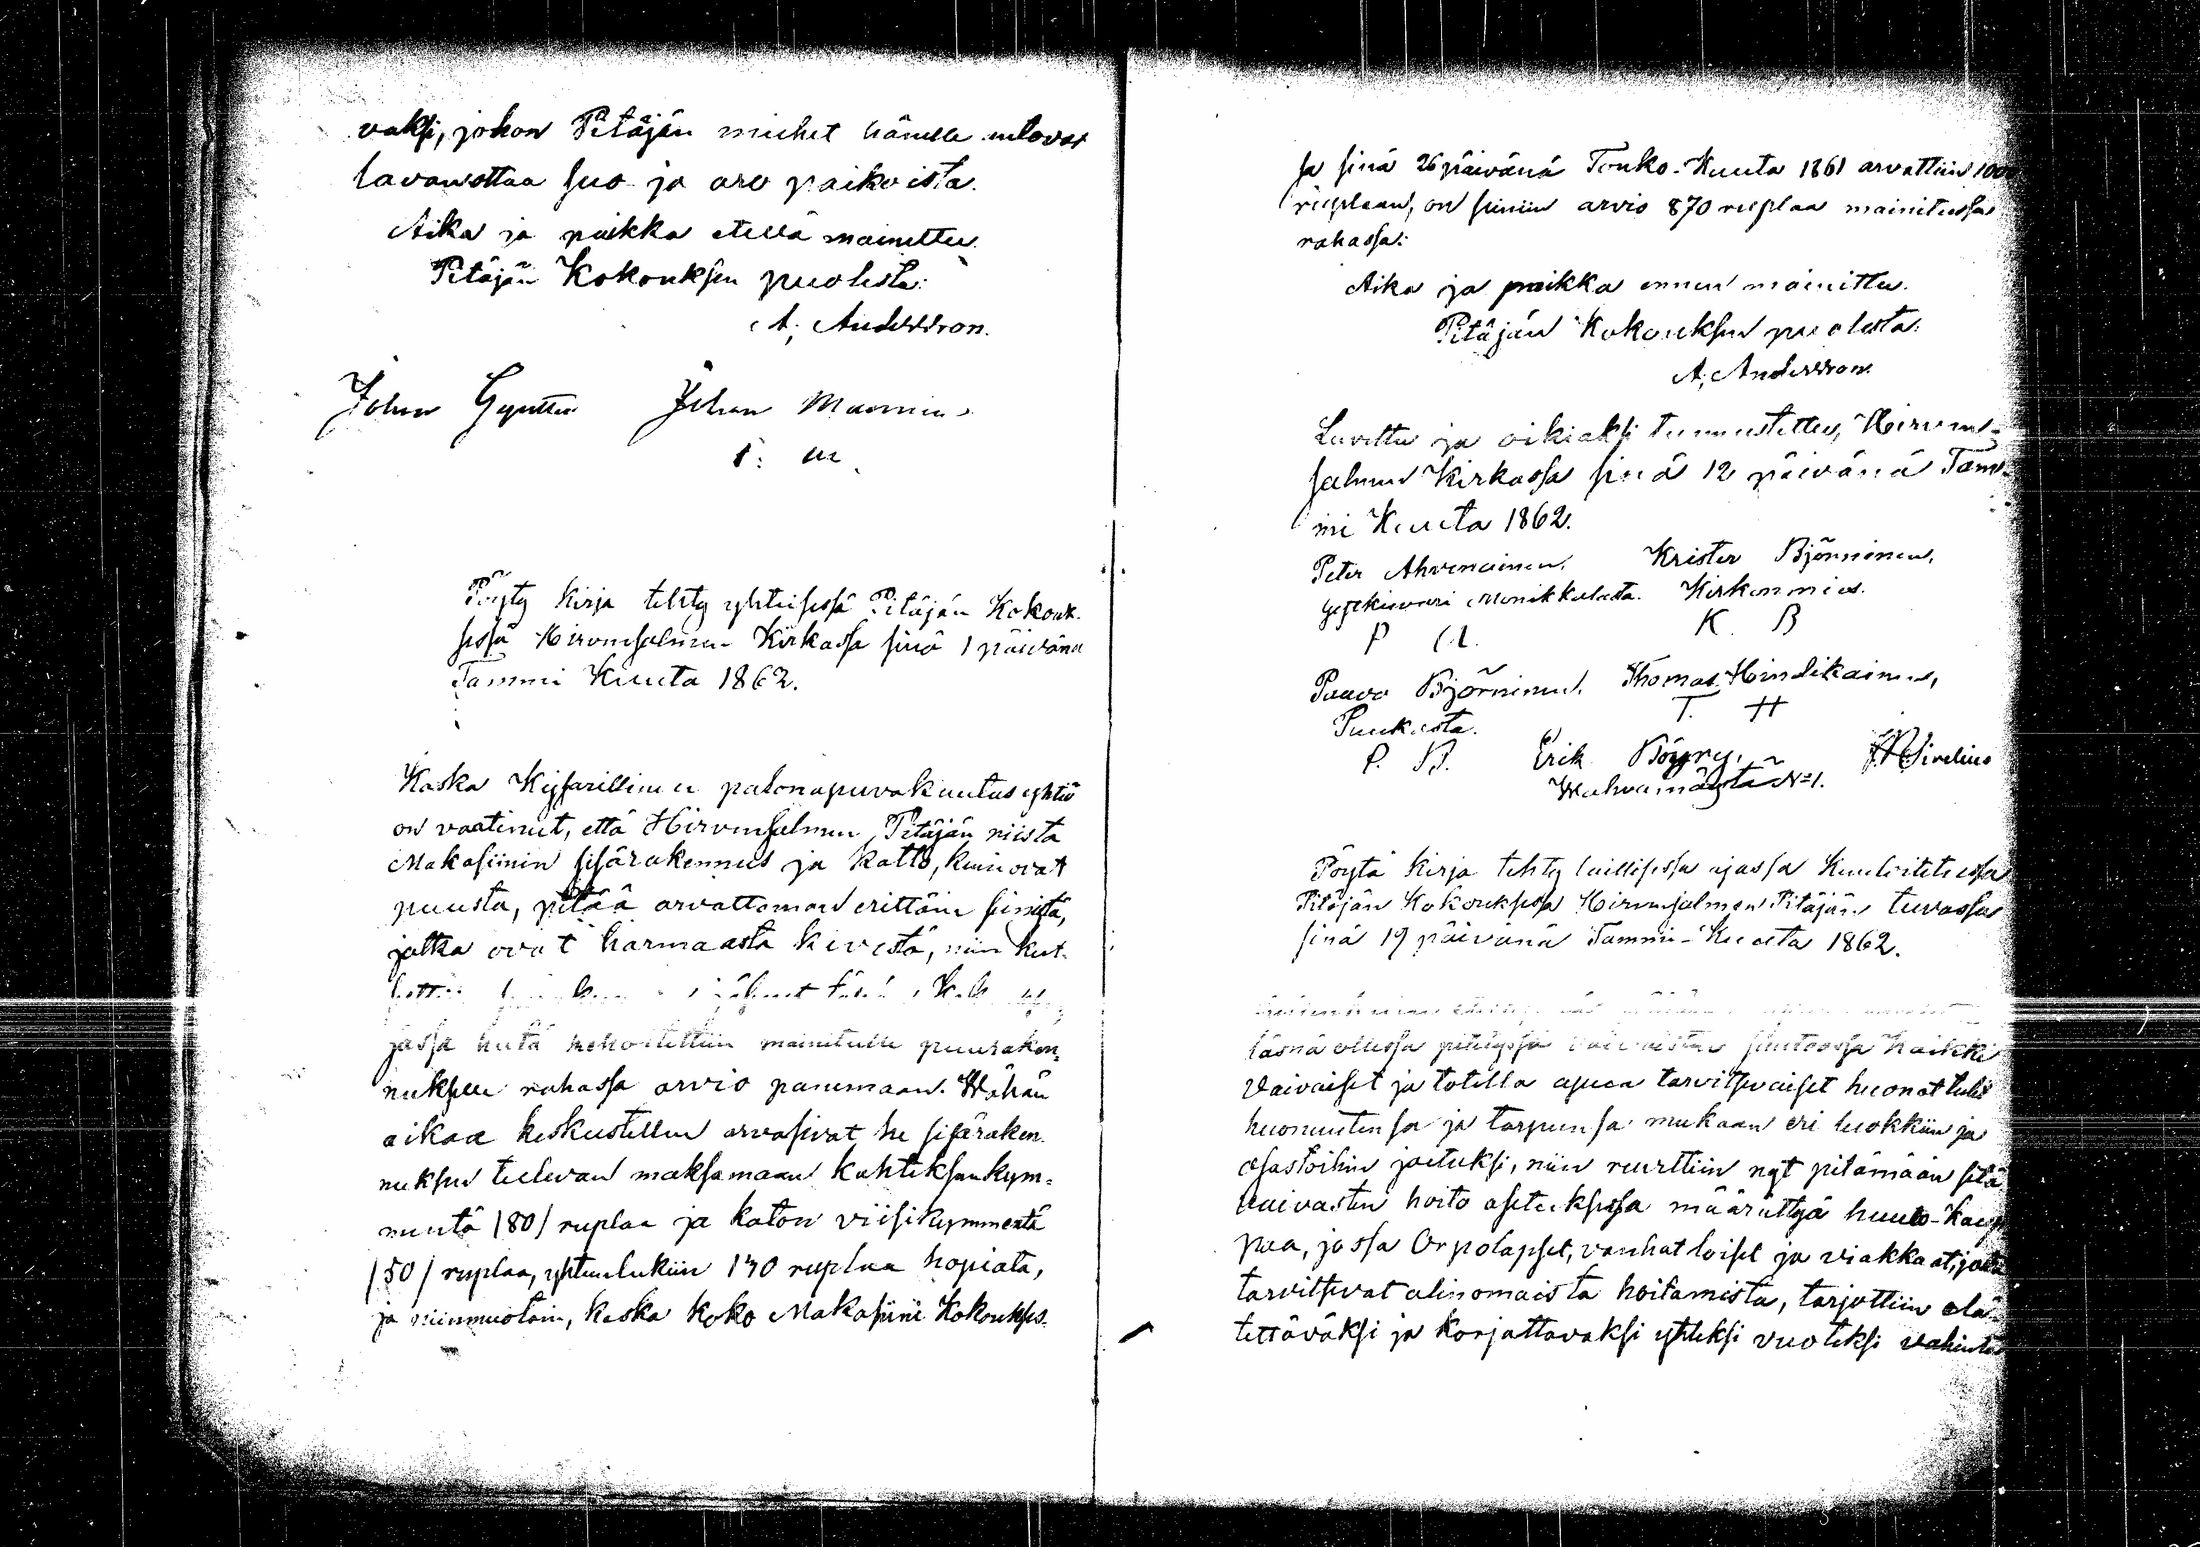 vaksi, johon Pitäjän miehet hänelle
lavawottaa suo ja aro paikoista.
Aika ja paikka etellä mainittu.
Pitäjän Kokouksen puolesta:
A. Andersson.
Johan Johan
Pöyty kirja tehty yhteisessä Pitäjän Kokouk-
sessa Hirvensalmen Kirkassa sinä 1 päivänä
Tammi Kuuta 1862.
Koska palonapuvakuutus yhtiö
on vaatinut, että Hirvensalmen Pitäjän niistä
Makasiinin sisärakennus ja katto, kuin ovat
puusta, pitää arvattaman erittäin seinistä,
jotka ovat harmaasta kivestä, niin kut-
jässä heitä mainitulle puuraken-
nukselle rahassa arvio panemaan. Wähän
aikaa keskustellen arvasivat he sisäraken-
nuksen tulevan maksamaan kahdeksankym-
mentä /80/ ruplaa ja katon viisikymmentä
/50/ ruplaa, yhteenlukiin 130 ruplaa hopiata,
ja niinmuotoin, koska koko Makasiini Kokoukses-
sa sinä 26 päivänä Touko-Kuuta 1861 arvattiin
ruplaan, on seiniin arvio 870 ruplaa mainitussa
rahassa:
Aika ja paikka ennen mainittu.
Pitäjän Kokouksen puolesta:
A. Andersson.
Luvettu ja oikiaksi tunnustettu, Hirven-
salmen Kirkassa sinä 12 päivänä Tam-
mi Kuuta 1862.
Peter Ahvenainen, Krister Björninen,
Monikkalasta. Kirkonmies.
P A. K B
Paavo Björninen, Thomas Hindikainen,
Puukasta. T. H
P. B. Erik Böyry,
Wahvamäestä N=1.
Pöytä kirja tehty laillisessa ajassa Kuuloitetussa
Pitäjän Kokouksessa Hirvensalmen Pitäjän tuvassa
sinä 19 päivänä Tammi-Kuuta 1862.
läsnä ollessa kaikki
Vaivaiset ja totella apua tarvitsevaiset huonot
huonuutensa ja tarpunsa mukaan eri luokkiin ja
osastoihin jaetuksi, niin ruvettiin nyt pitämään sitä
vaivasten hoito asetuksessa määrättyä huuto-kaup-
paa, jossa Orpolapset, vanhat loiset ja viakkaat, jotka
tarvitsevat alinomaista hoitamista, tarjottiin elä-
tettäväksi ja korjattavaksi yhdeksi vuodeksi